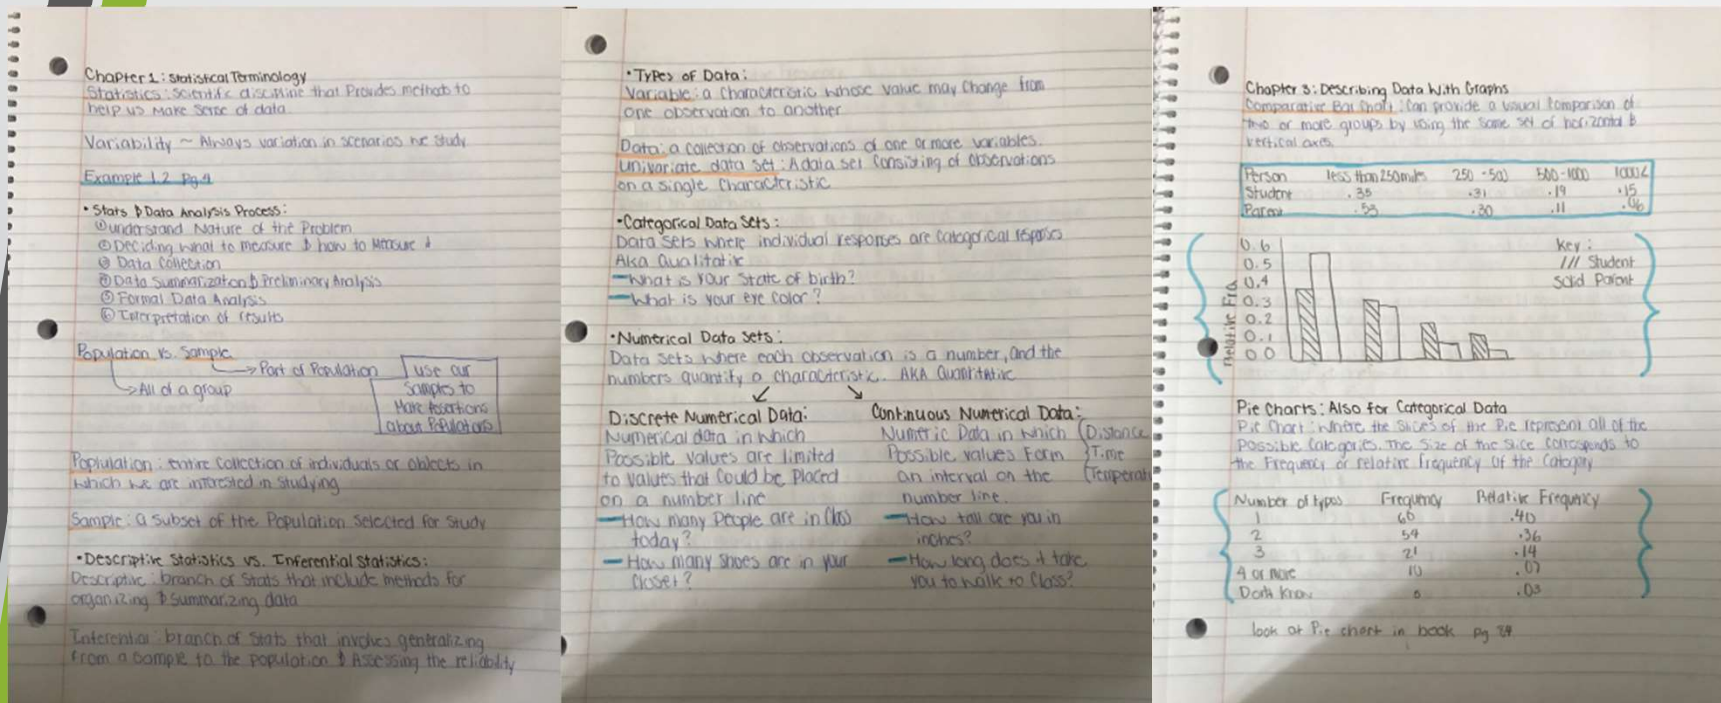 Chapter 1: Statistical Terminology
Statistics: scientific discipline that Provides methods to
help us Make Sense of data
Variability ~ Always variation in scenarios we study
Example 1.2 Pg.4
• Stats & Data Analysis Process:
① understand Nature of the Problem
② Deciding what to measure & how to Measure it
③ Data Collection
④ Data Summarization & Preliminary Analysis
⑤ Formal Data Analysis
⑥ Interpretation of results
Population vs. Sample
→ Part of Population
→ All of a group
use our
Samples to
Make Assertions
about Populations
Poplulation: entire Collection of individuals or objects in
which we are interested in studying
Sample: a Subset of the Population Selected for Study
• Descriptive Statistics vs. Inferential Statistics:
Descriptive: branch of Stats that include methods for
organizing & Summarizing data
Inferential: branch of Stats that involves generalizing
from a Sample to the population & Assessing the reliability
• Types of Data:
Variable: a Characteristic whose value may Change from
one observation to another
Data: a collection of observations of one or more variables.
Univariate data set: A data set Consisting of observations
on a single Characteristic
• Categorical Data Sets:
Data Sets where individual responses are Categorical
Aka Qualitative
— What is Your State of birth?
— What is your eye color?
• Numerical Data Sets:
Data Sets where each observation is a number, and the
numbers quantify a characteristic. AKA Quantitative
Discrete Numerical Data:
Numerical data in which
Possible values are limited
to values that Could be Placed
on a number line
— How many People are in Class
today?
— How many Shoes are in your
Closet?
Continuous Numerical Data:
Numeric Data in which
Possible values Form
an interval on the
number line.
(Distance
Time
(Temperat
— How tall are you in
inches?
— How long does it take
you to walk to Class?
Chapter 3: Describing Data With Graphs
Comparative Bar Chart: Can provide a visual Comparison of
two or more groups by using the Same set of horizontal &
vertical axes.
Person less than 250 miles 250-500 500-1000 1000<
Student .35 .31 .19 .15
Parent .53 .30 .11 .06
0.6
0.5
0.4
0.3
0.2
0.1
0.0
Relative Frq
Key:
/// Student
Solid Parent
Pie Charts: Also for Categorical Data
Pie Chart: Where the Slices of the Pie represent all of the
Possible Categories. The Size of the Slice Corresponds to
the Frequency or relative frequency of the Category
Number of typos Frequency Relative Frequency
1 60 .40
2 54 .36
3 21 .14
4 or more 10 .07
Don't Know .03
look at Pie chart in book pg